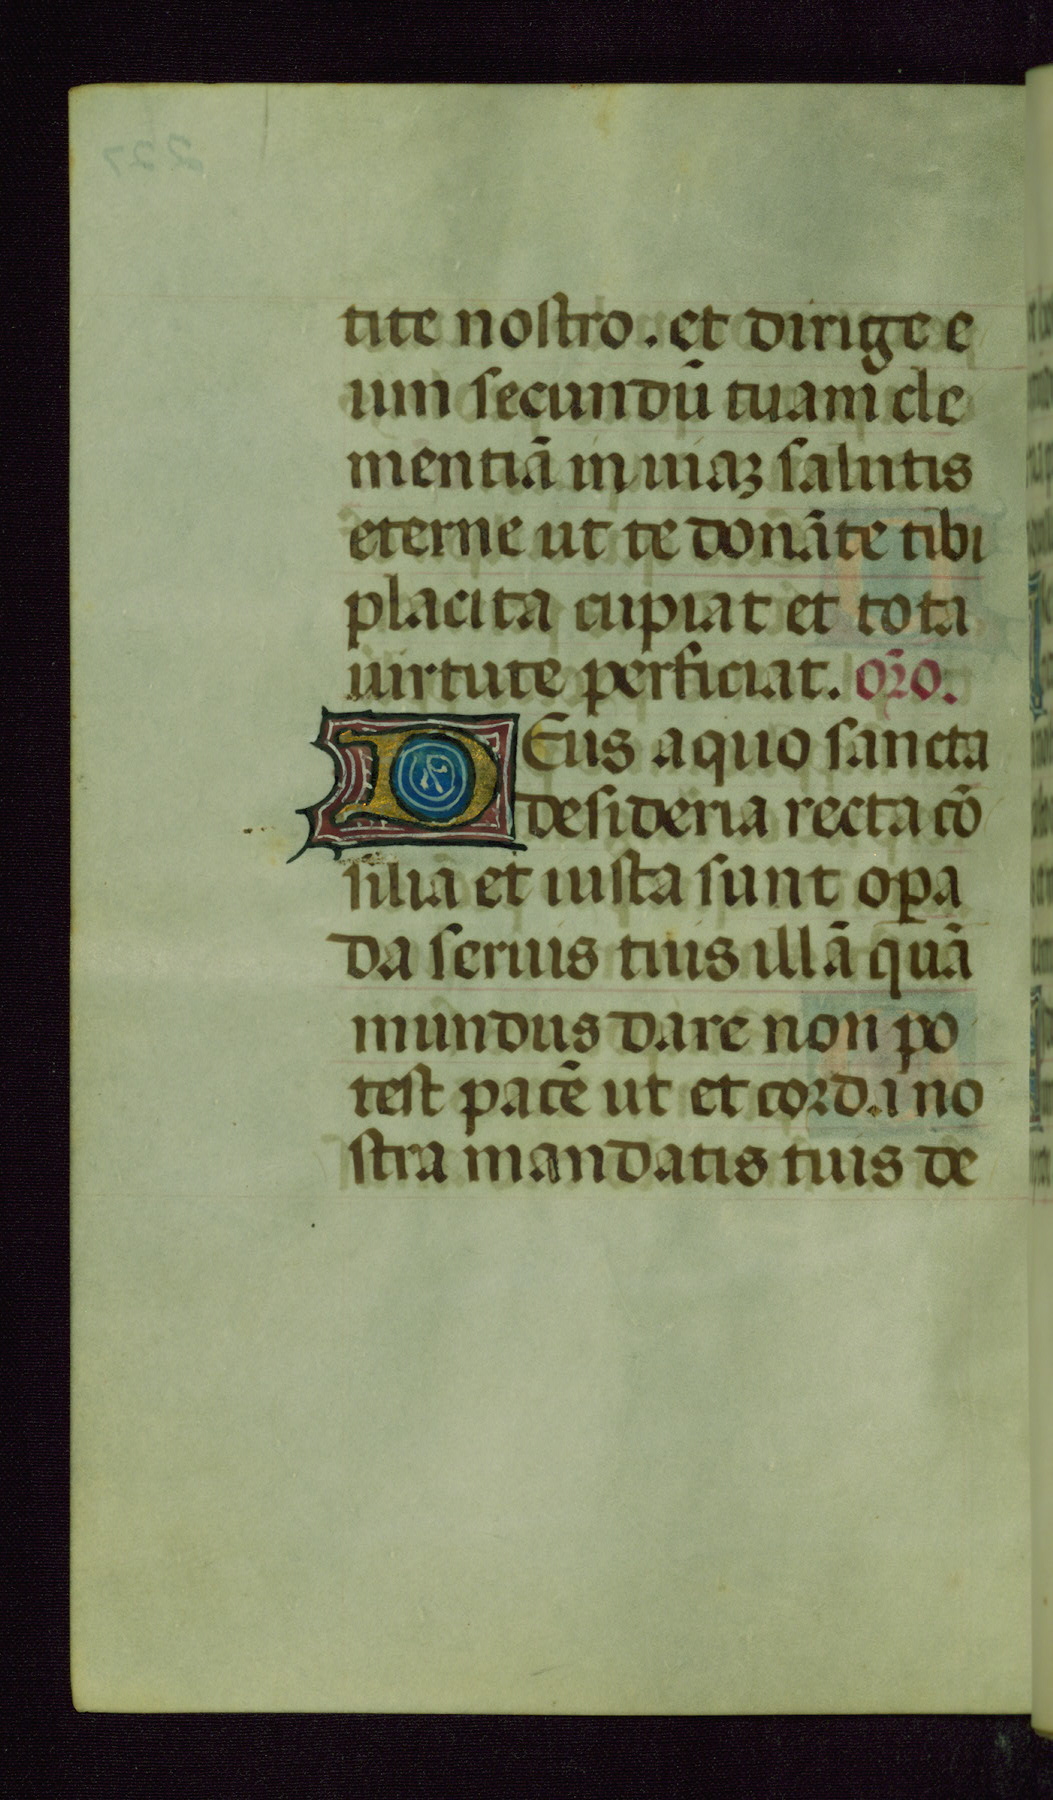 tite nostro. et dirige e
um secundū tuam cle
mentiā in uiaꝫ salutis
eterne ut te donāte tibi
placita cupiat et tota
uirtute perficiat. or̄o.
DEus a quo sancta
desideria recta cō
silia et iusta sunt oꝑa
da seruis tuis illā quā
mundus dare non po
test pacē ut et corda no
stra mandatis tuis de